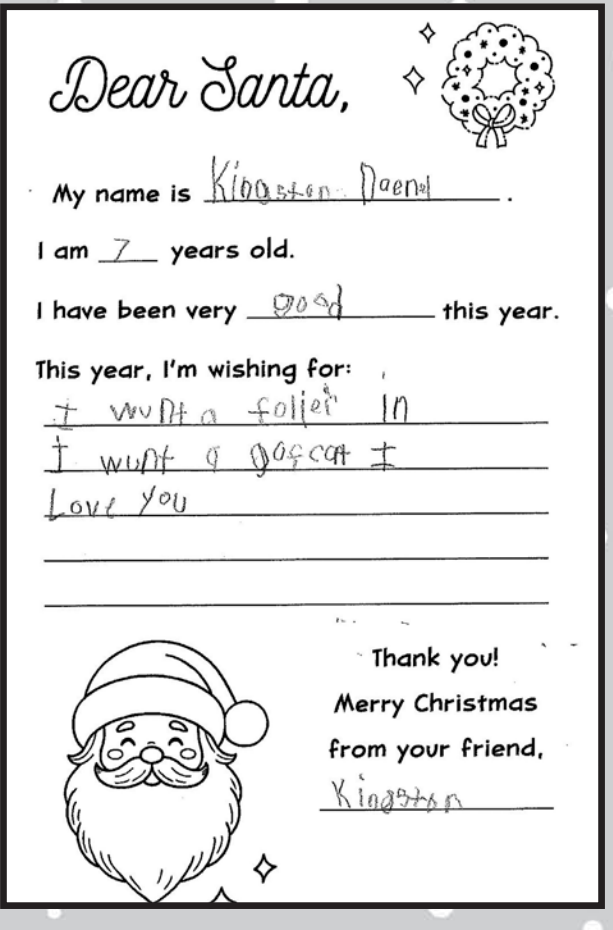 Dear Santa,
My name is Kingston Daenel.
I am 7 years old.
I have been very good this year.
This year, I'm wishing for:
I wunt a follier In
I wunt a gofcat I
Love you
Thank you!
Merry Christmas
from your friend,
Kingston